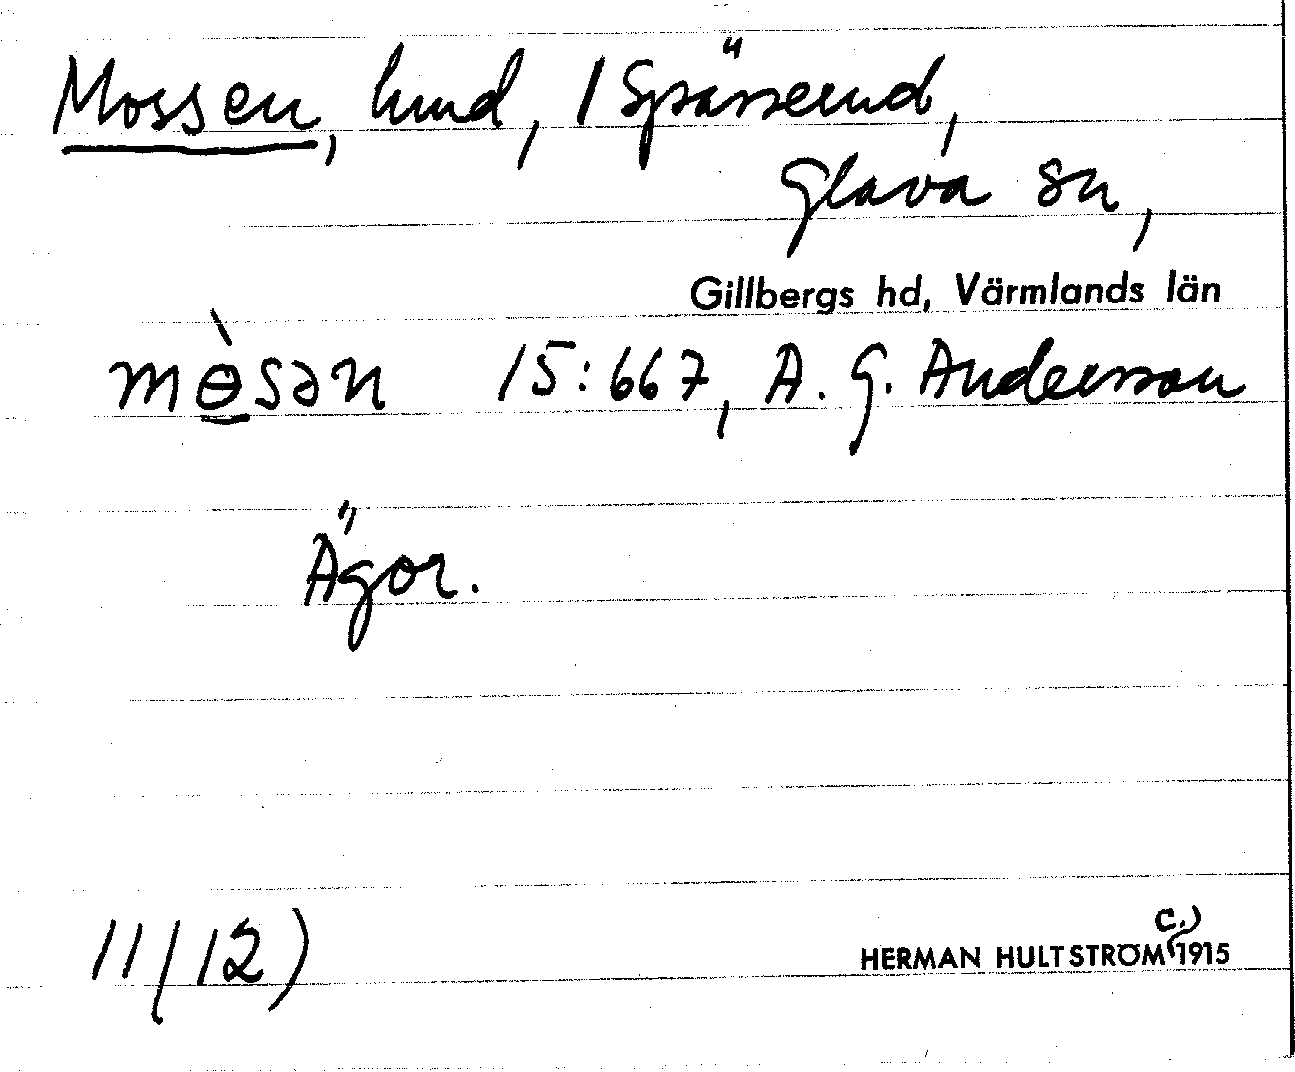 Mossen, hmd, 1 Spässerud,
Glava sn,
Gillbergs hd, Värmlands län
mɵ̀sən 15:667, A. G. Andersson
Ägor.
11/12)
c.)
HERMAN HULTSTRÖM 1915